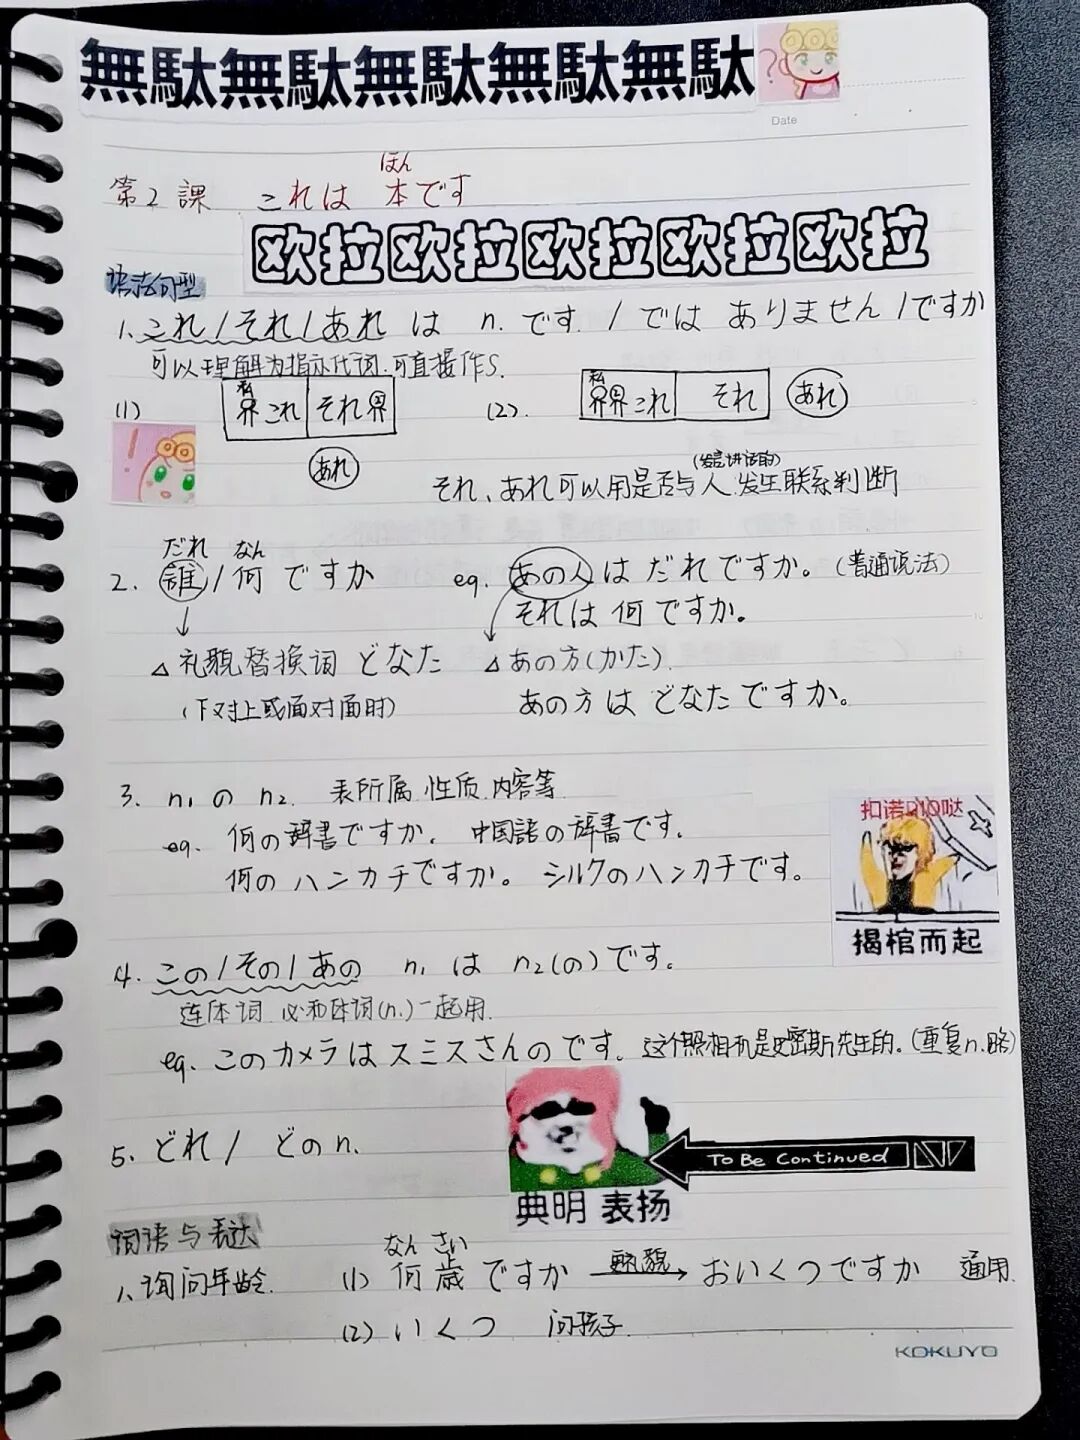 無駄無駄無駄無駄無駄
Date
ほん
第2課 これは 本です
欧拉欧拉欧拉欧拉欧拉
语法句型
1. これ/それ/あれ は n. です / では ありません/ですか
可以理解为指示代词.可直接作S.
私
(1) 界これ それ界
あれ
私
(2). 界界これ それ あれ
(发言讲话的)
それ、あれ可以用是否与人.发生联系判断
だれ なん
2. 誰/何 ですか eg. あの人は だれですか。(普通说法)
それは 何ですか。
△ 礼貌替换词 どなた △ あの方(かた).
(下对上或面对面时) あの方は どなたですか。
3. n₁ の n₂. 表所属.性质.内容等
eg. 何の辞書ですか. 中国語の辞書です.
何の ハンカチですか。 シルクのハンカチです。
扣诺DIO哒
揭棺而起
4. この/その/あの n₁ は n₂(の)です。
连体词 必和体词(n.)一起用.
eg. このカメラはスミスさんのです. 这个照相机是史密斯先生的。(重复n.略)
5. どれ/ どの n.
To Be Continued
典明 表扬
词语与表达
なん さい
1、询问年龄. (1) 何歳ですか 礼貌→ おいくつですか 通用.
(2) いくつ 问孩子.
KOKUYO